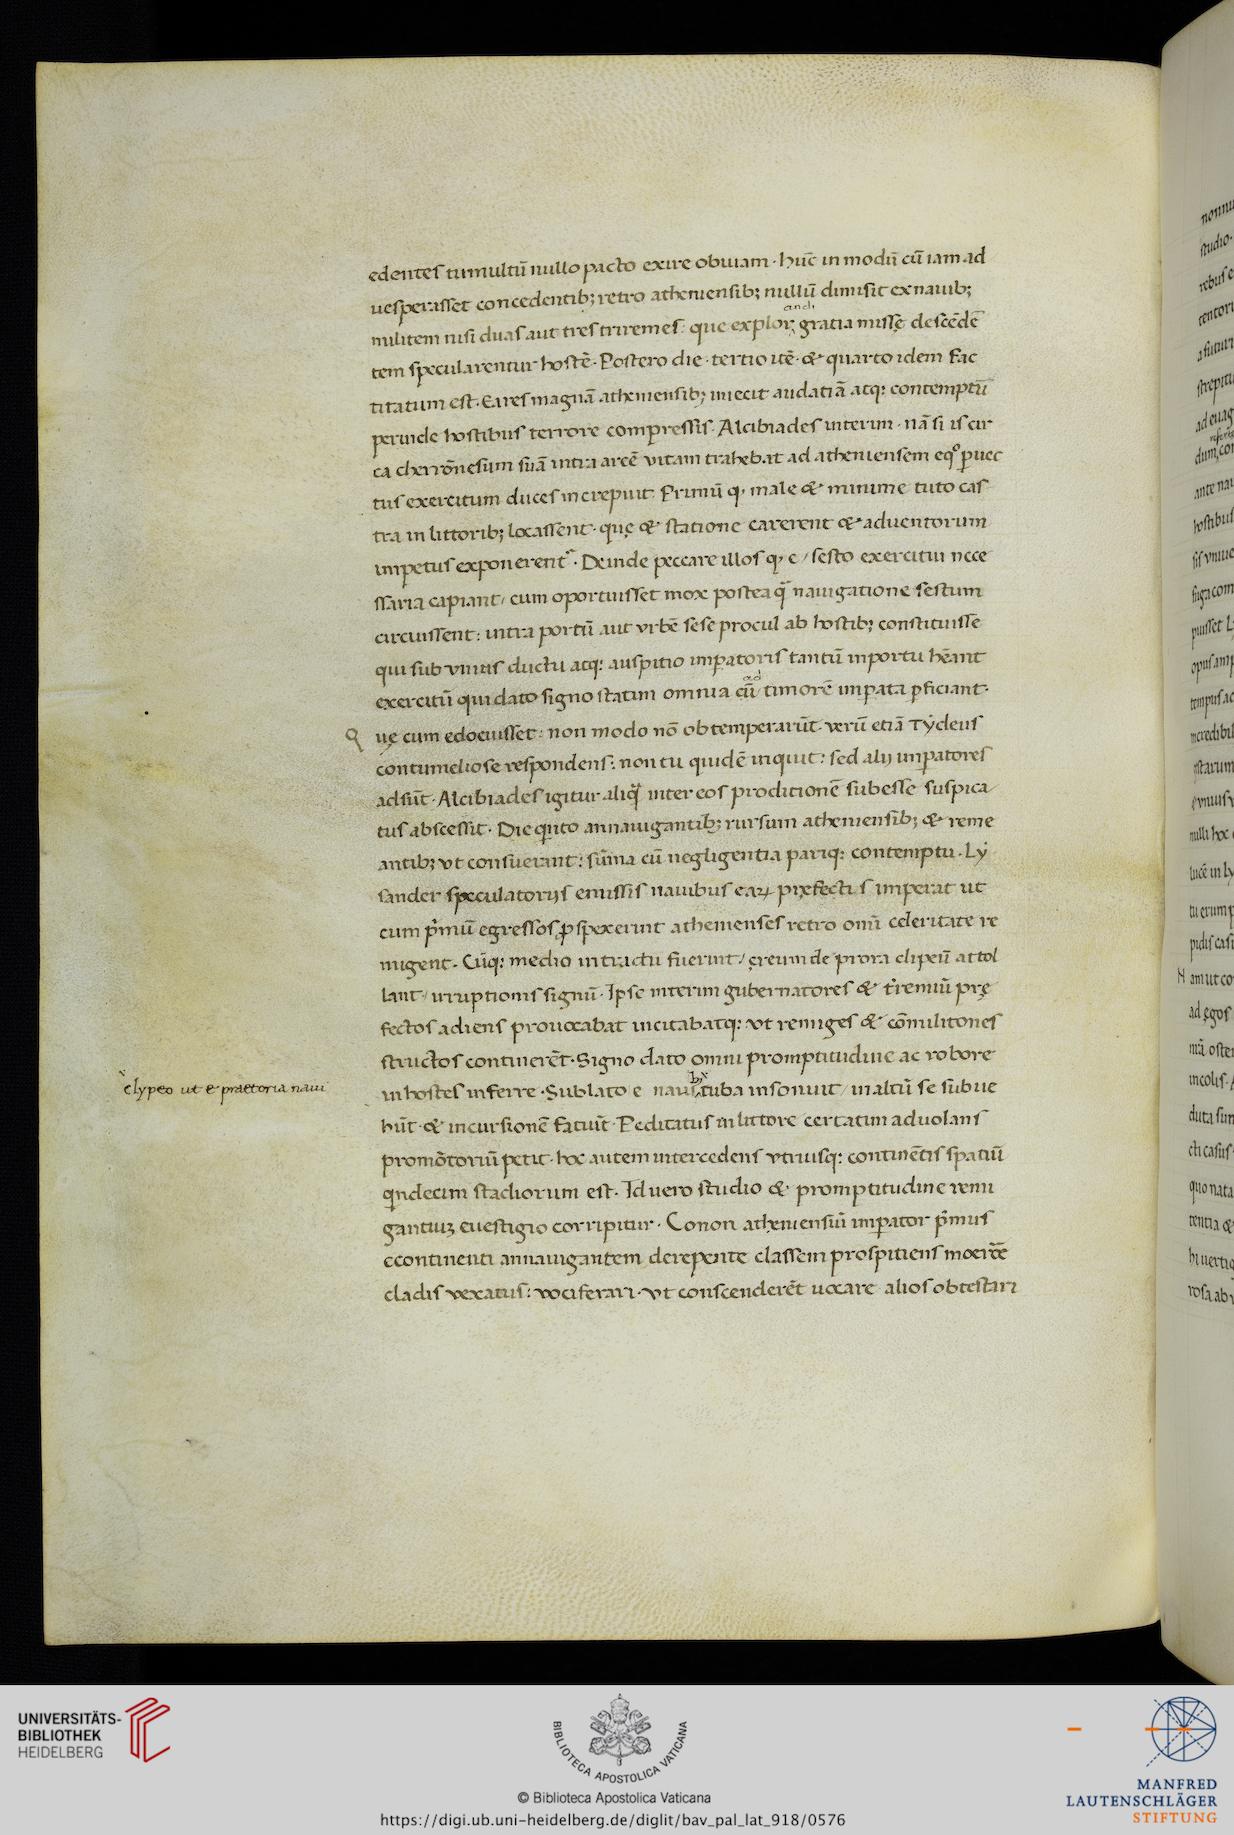 edentes tumultū nullo pacto exire obuiam · hūc in modū cū iam ad
uesperasset concedentib; retro atheniensib; nullū dimisit ex nauib;
andi
militem nisi duas aut tres triremes: que explor, gratia missę descēdē
tem specularentur hostē · Postero die · tertio itē · & quarto idem fac
titatum est · Ea res magnā atheniensib; iniecit audatiā atq: contemptū
perinde hostibus terrore compressis · Alcibiades interim · nā si is cir
ca cherrōnesum suā intra arcē vitam trahebat ad atheniensem eqº puec
tus exercitum duces increpuit · Primū q, male & minime tuto cas
tra in littorib; locassent · quę & statione carerent & aduentorum
impetus exponerent · Deinde peccare illos q, e / sesto exercitui nece
ssaria capiant / cum oportuisset mox postea q̄ nauigatione sestum
circuissent: intra portū aut vrbē sese procul ab hostib; constituisse
qui sub vnius ductu atq: auspitio impatoris tantū in portu hēant
ad
exercitū qui dato signo statim omnia cū timorē impata pficiant ·
Q uę cum edocuisset: non modo nō obtemperarūt · verū etiā Tẏdeus
contumeliose respondens: non tu quidē inquit: sed alij impatores
adsūt · Alcibiades igitur aliq̄ inter eos proditionē subesse suspica
tus abscessit · Die qinto annauigantib; rursum atheniensib; & reme
antib; vt consueuerant: sūma cū negligentia pariq: contemptu · Lẏ
sander speculatorijs emissis nauibus eaꝝ pręfectis imperat ut
cum pmū egressos pspexerint athenienses retro omī celeritate re
migent · Cūq: medio in tractu fuerint / ęreum de prora clipeū attol
lant / irruptionis signū · Ipse interim gubernatores & triremiū prę
fectos adiens prouocabat incitabatq: vt remiges & cōmilitones
structos continerēt · Signo dato omni promptitudine ac robore
clypeo ut e praetoria naui
in hostes inferre · Sublato e nauib; tuba insonuit / in altū se subue
hūt · & incursionē fatiūt · Peditatus in littore certatim aduolans
promōtoriū petit · hoc autem intercedens vtriusq: continētis spatiū
qindecim stadiorum est · Id uero studio & promptitudine remi
gantiuꝫ euestigio corripitur · Conon atheniensiū impator pmus
e continenti annauigantem derepente classem prospitiens moerōre
cladis vexatus: vociferari · vt conscenderēt uocare alios obtestari
UNIVERSITÄTS-
BIBLIOTHEK
HEIDELBERG
BIBLIOTECA APOSTOLICA VATICANA
© Biblioteca Apostolica Vaticana
https://digi.ub.uni-heidelberg.de/diglit/bav_pal_lat_918/0576
MANFRED
LAUTENSCHLÄGER
STIFTUNG